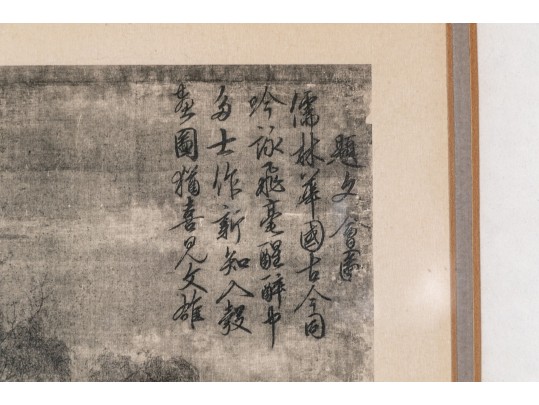 題文會圖
儒林華國古今同
吟詠飛毫醒醉中
多士作新知入彀
畫圖猶喜見文雄